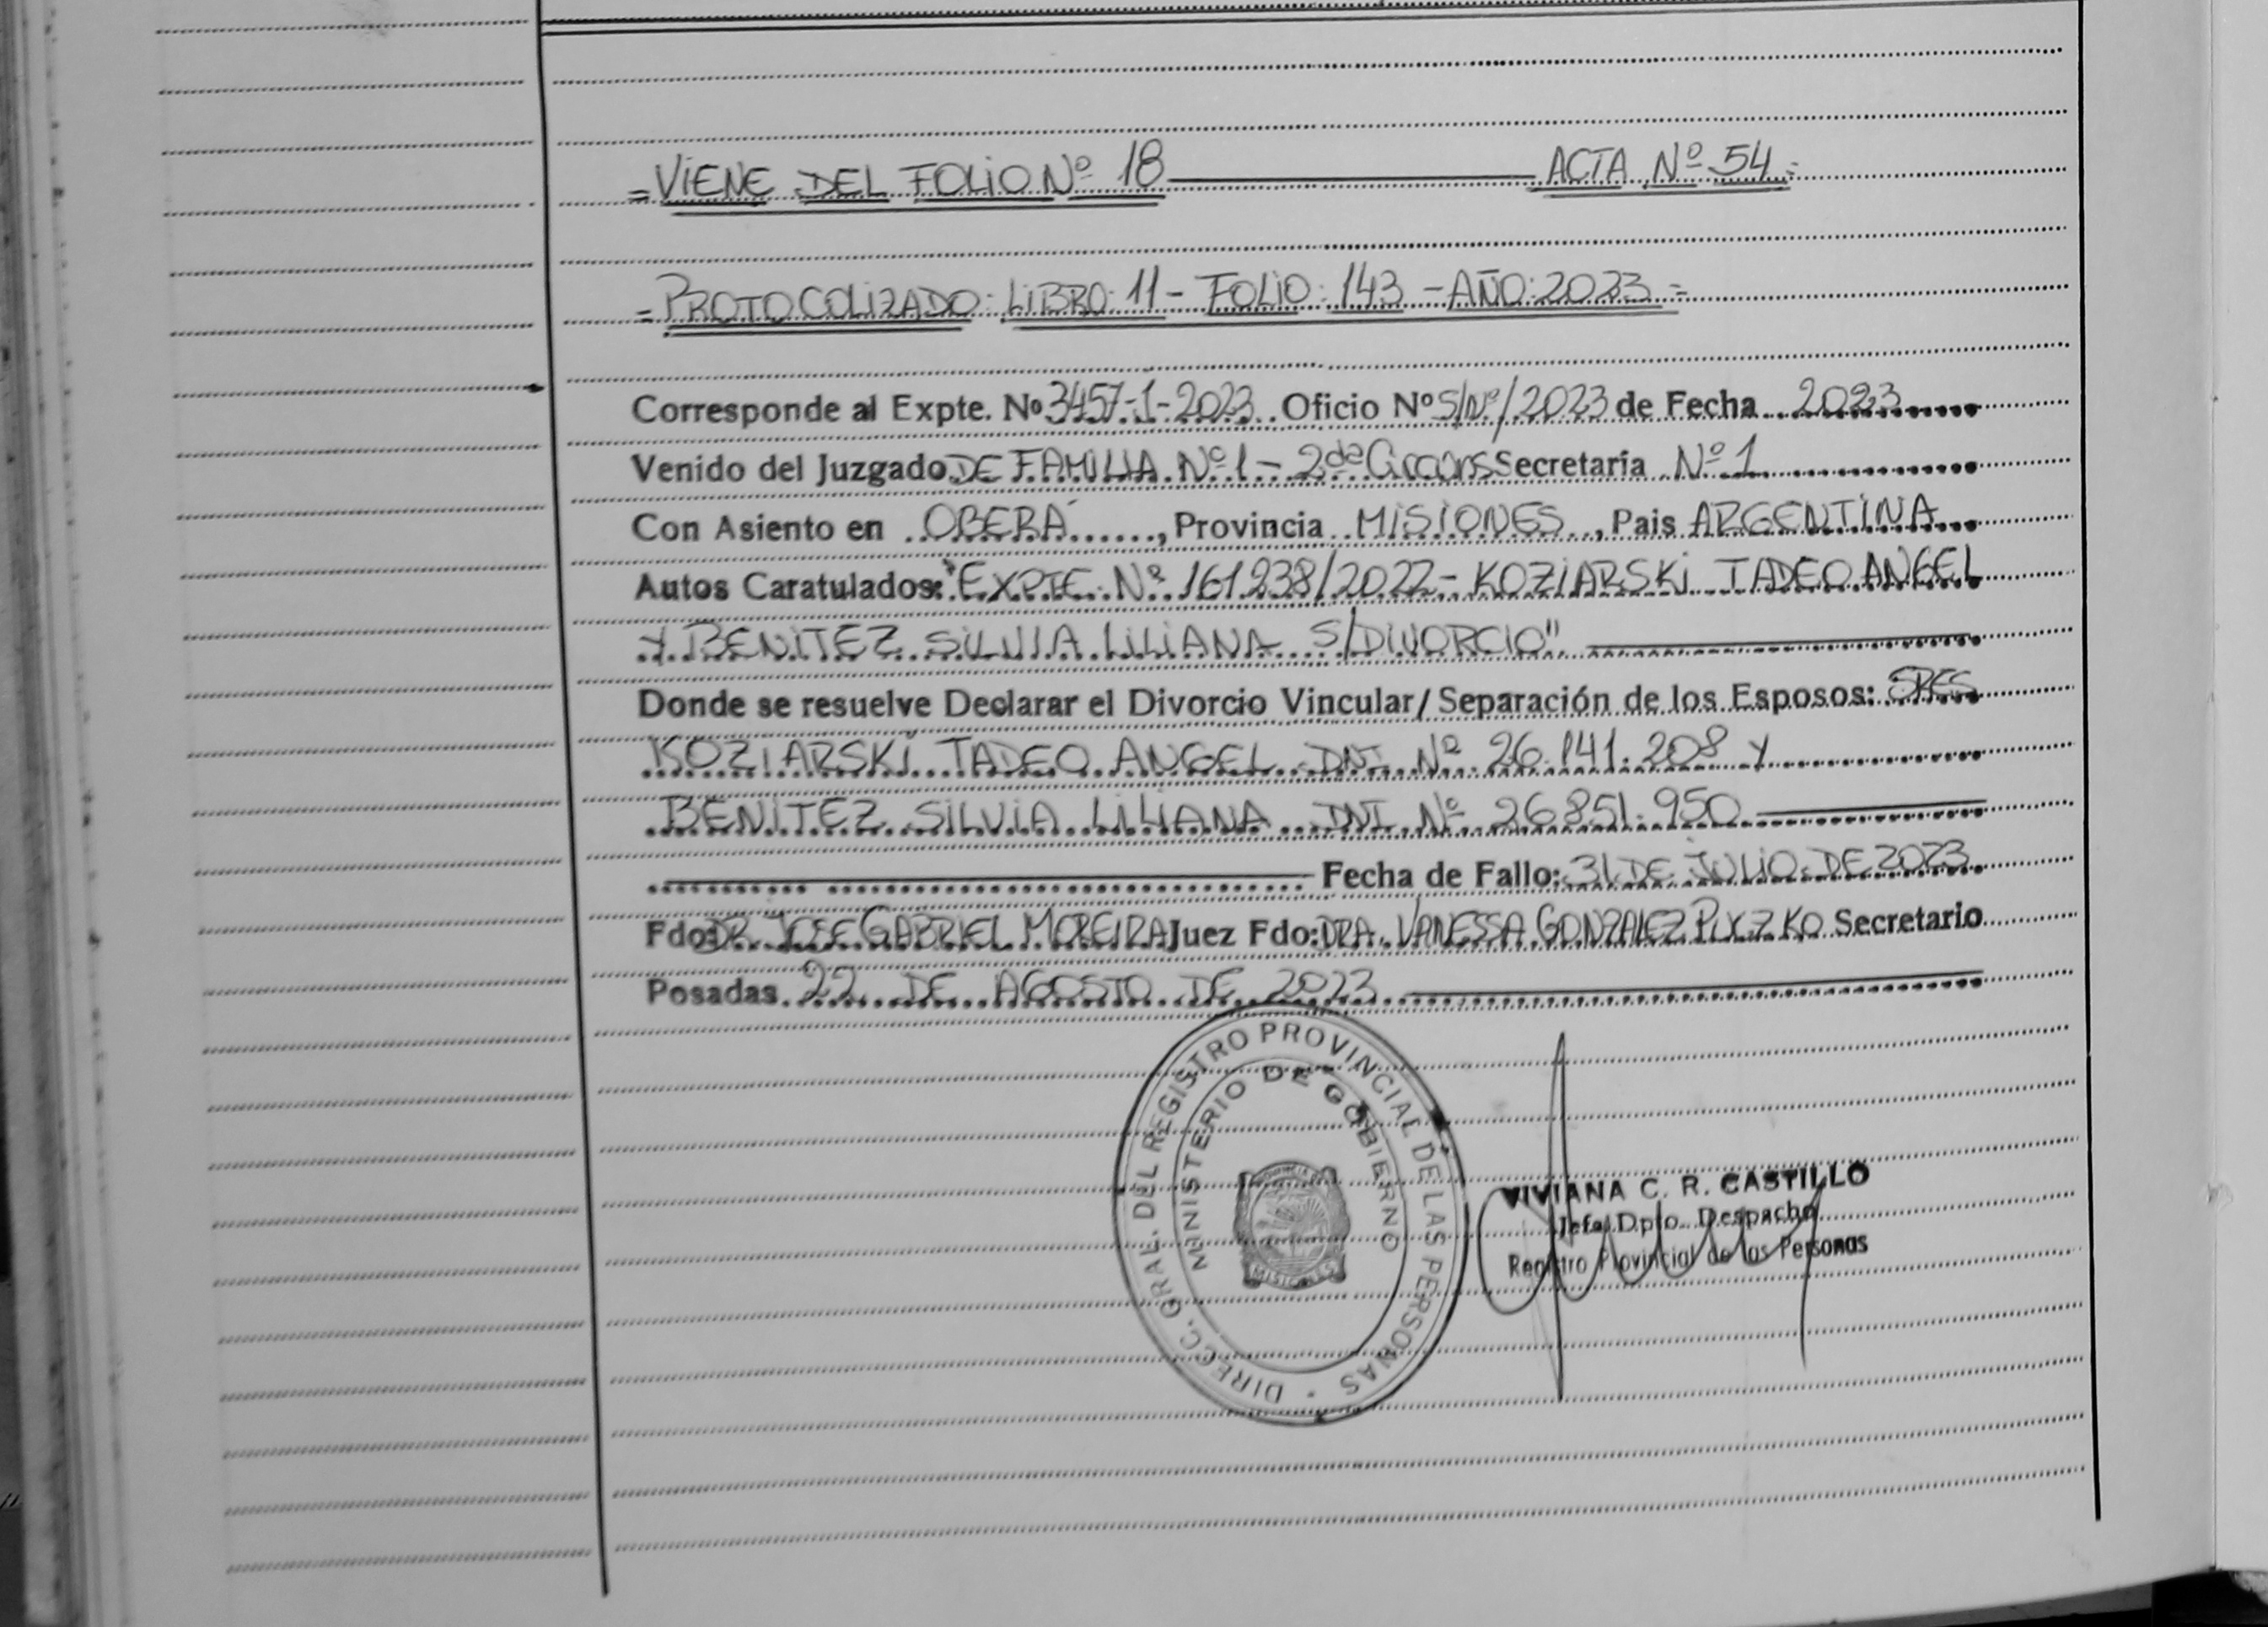 =VIENE DEL FOLIO Nº 18 ACTA Nº 54=
=PROTOCOLIZADO: LIBRO: 11 - FOLIO: 143 - AÑO: 2023=
Corresponde al Expte. Nº 3457-1-2023 Oficio Nº S/Nº/2023 de Fecha 2023
Venido del Juzgado DE FAMILIA Nº 1 - 2da Circuns Secretaría Nº 1
Con Asiento en OBERÁ, Provincia MISIONES, Pais ARGENTINA
Autos Caratulados: "EXPTE. Nº 161238/2022 - KOZIARSKI TADEO ANGEL
Y BENITEZ SILVIA LILIANA S/DIVORCIO"
Donde se resuelve Declarar el Divorcio Vincular/Separación de los Esposos: SRES
KOZIARSKI TADEO ANGEL DNI Nº 26.141.208 Y
BENITEZ SILVIA LILIANA DNI Nº 26.851.950
Fecha de Fallo: 31 DE JULIO DE 2023
Fdo: DR. JOSE GABRIEL MOREIRA Juez Fdo: DRA. VANESSA GONZALEZ Secretario
Posadas 22 DE AGOSTO DE 2023
DIRECC. GRAL. DEL REGISTRO PROVINCIAL DE LAS PERSONAS
MINISTERIO DE GOBIERNO
MISIONES
VIVIANA C. R. CASTILLO
Jefa Dpto. Despacho
Registro Provincial de las Personas